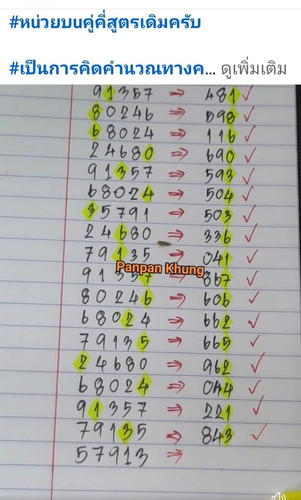 #หน่วยบนคู่คี่สูตรเดิมครับ
#เป็นการคิดคำนวณทางค... ดูเพิ่มเติม
91357 ⇒ 481 ✓
80246 ⇒ 598 ✓
68024 ⇒ 116 ✓
24680 ⇒ 690 ✓
91357 ⇒ 593 ✓
68024 ⇒ 504 ✓
35791 ⇒ 503 ✓
24680 ⇒ 336 ✓
79135 ⇒ 041 ✓
Panpan Khung
91357 ⇒ 867 ✓
80246 ⇒ 606 ✓
68024 ⇒ 662 ✓
79135 ⇒ 665 ✓
24680 ⇒ 962 ✓
68024 ⇒ 044 ✓
91357 ⇒ 221 ✓
79135 ⇒ 843 ✓
57913 ⇒